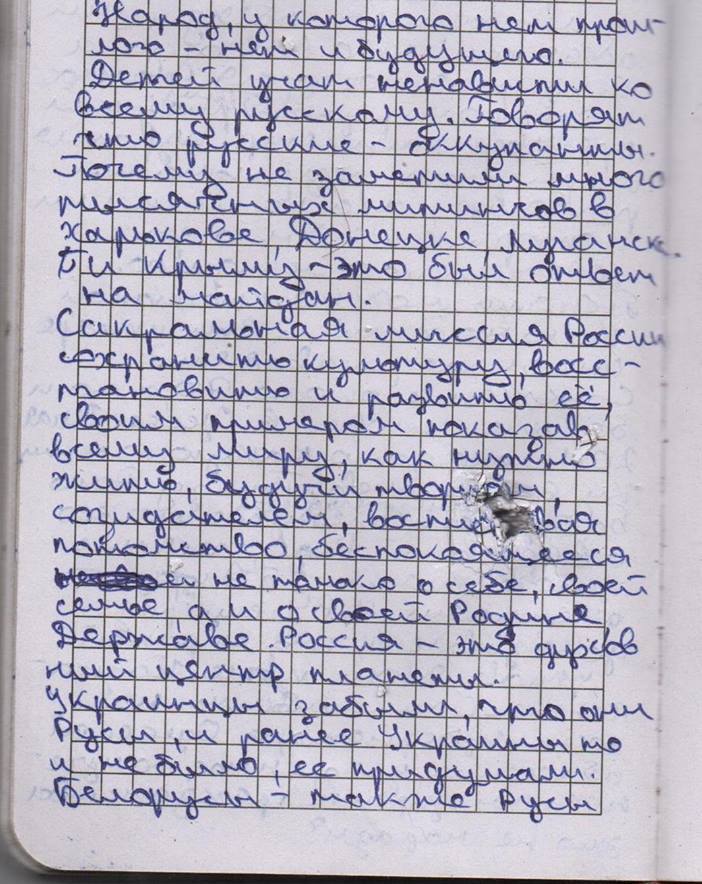 Народ, у которого нет прош-
лого – нет и будущего.
Детей учат ненависти ко
всему русскому. Говорят
что русские – оккупанты.
Почему не заметили много
тысячных митингов в
Харькове, Донецке, Луганск.
Би Крыму – это был ответ
на майдан.
Сакральная миссия России
сохранить культуру, восс-
тановить и развить её,
своим примером показав
всему миру, как нужно
жить, будучи творцом,
созидателем,
потомство, беспокоящееся
не только о себе, своей
семье а и о своей Родине
Державе. Россия – это духов
ный центр планеты.
Украинцы забыли, что они
Русы, и ранее Украины то
и не было, ее придумали.
Белорусы – также Русы